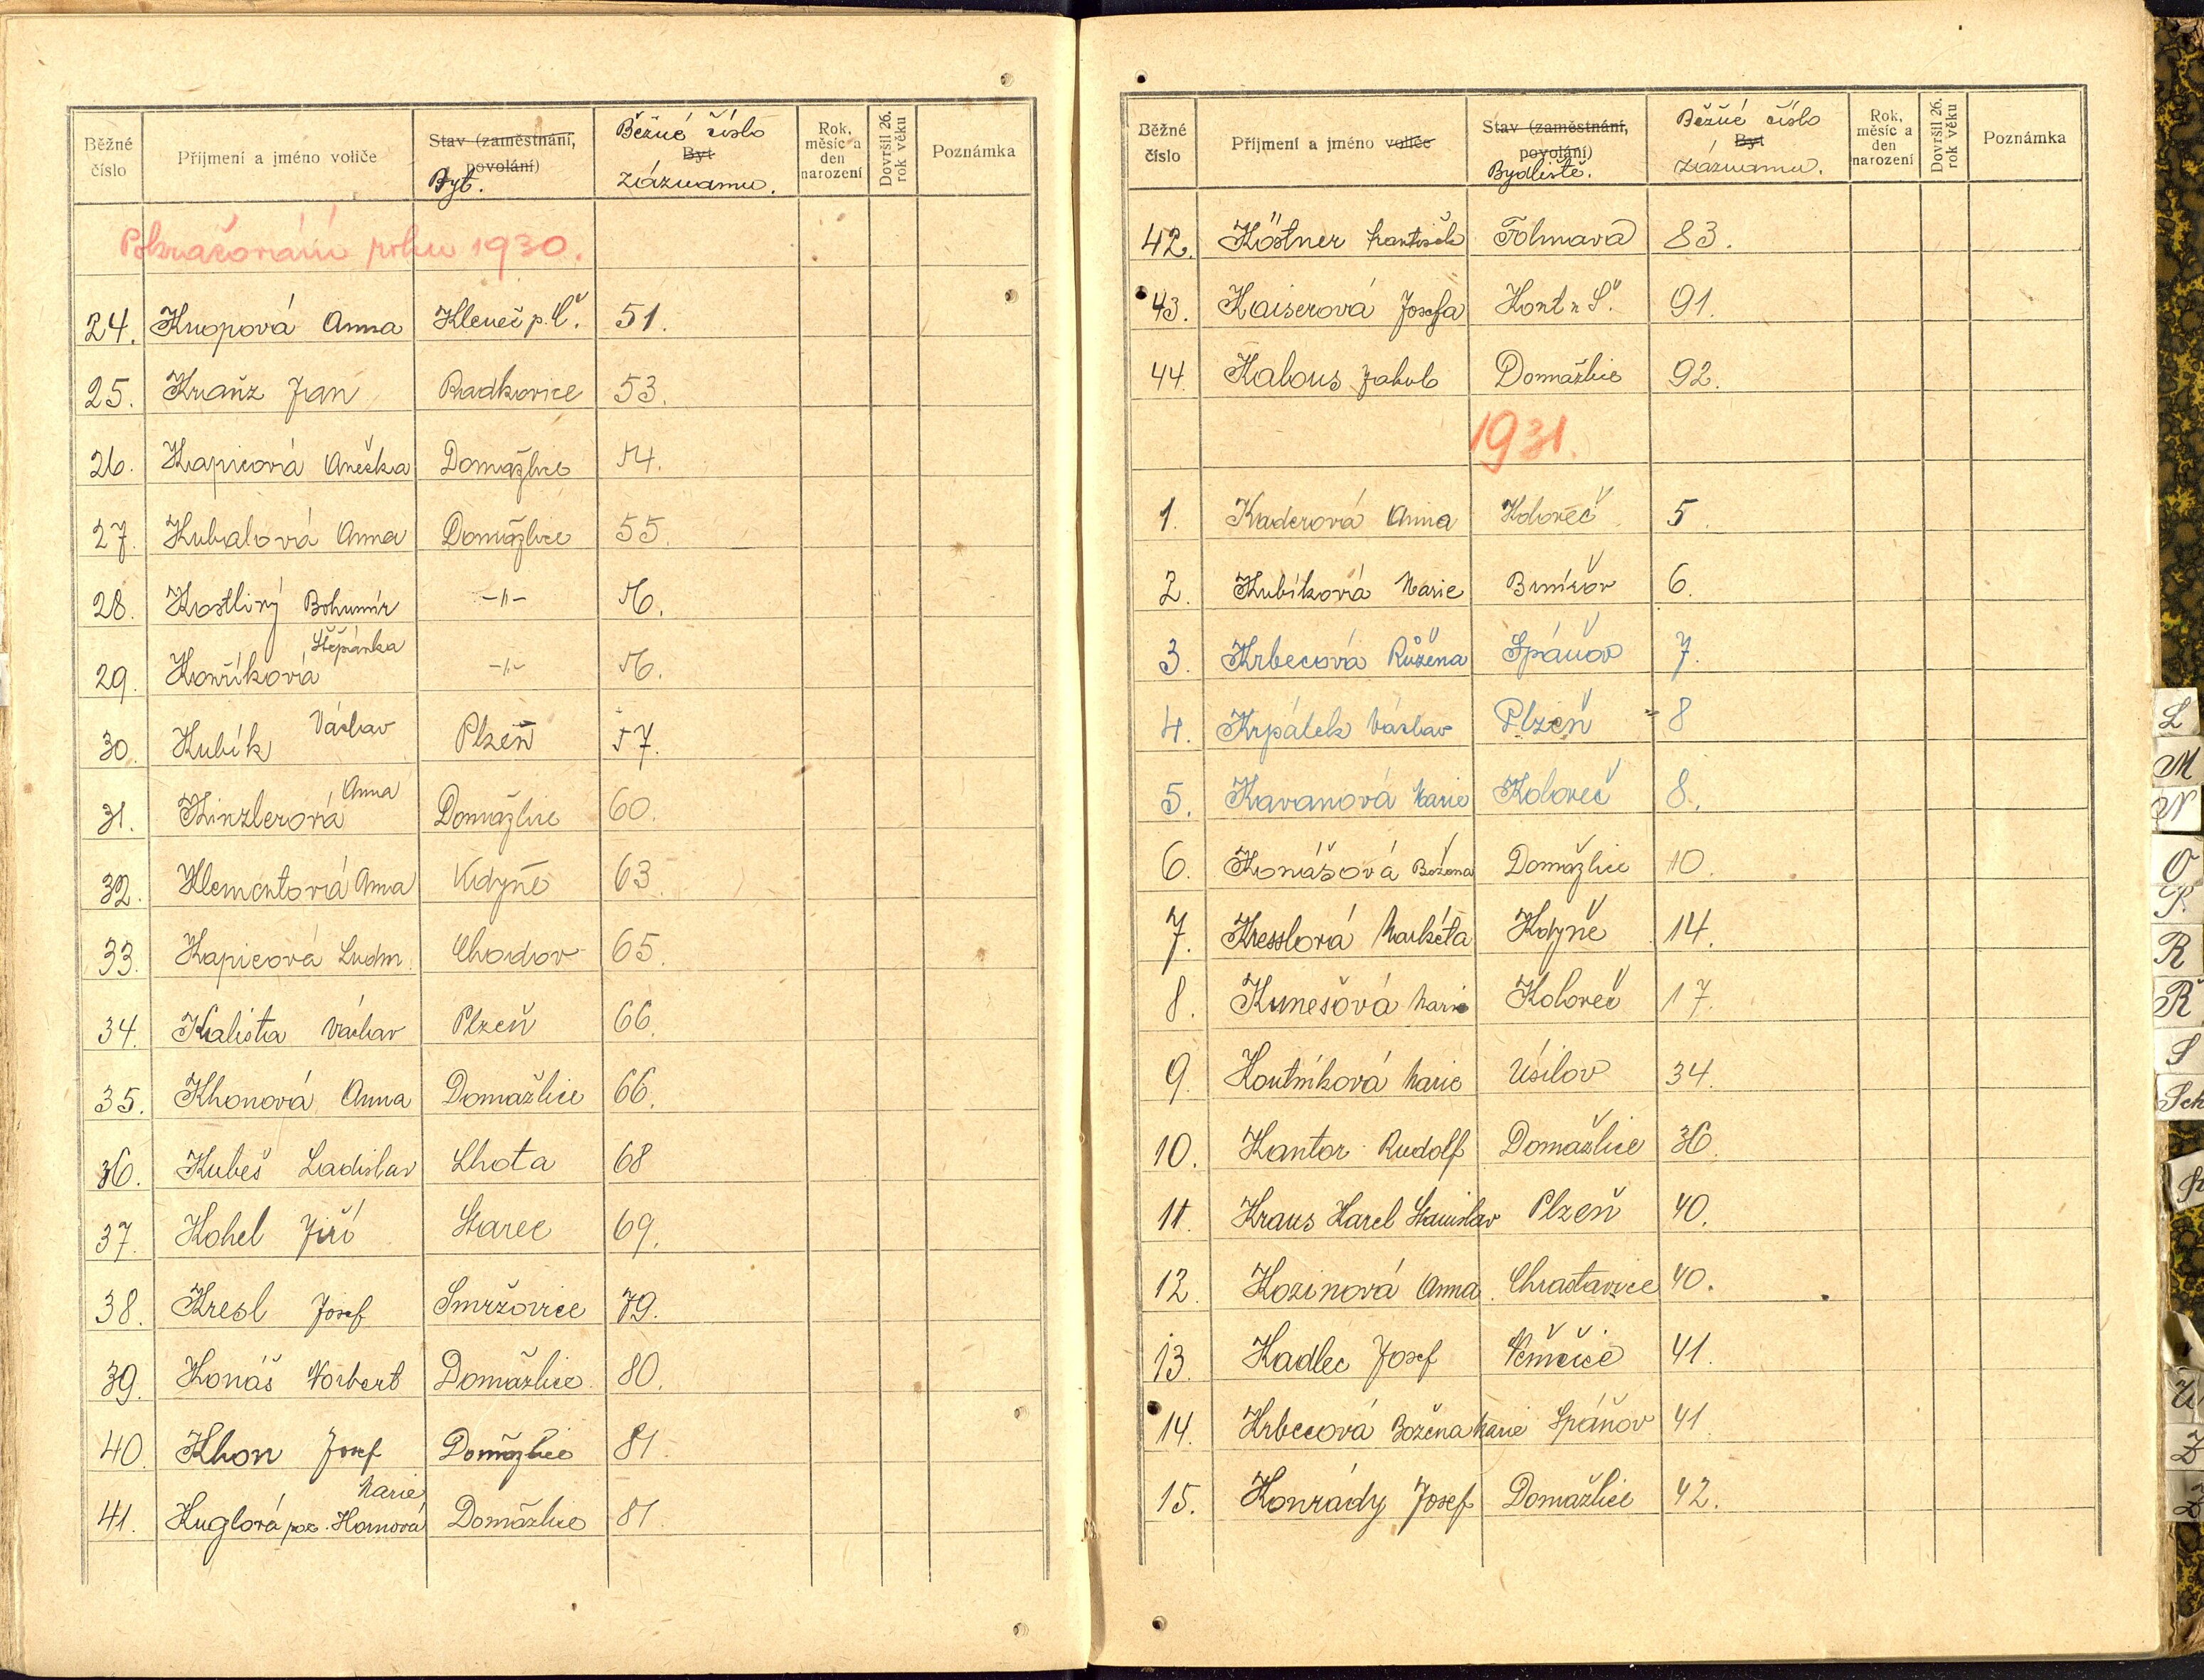 Běžné číslo | Příjmení a jméno voliče | Stav (zaměstnání, povolání) Byt. | Běžné číslo Byt záznamu. | Rok, měsíc a den narození | Dovršil 26. rok věku | Poznámka
Pokračování roku 1930.
24. Knopová Anna Kleneč p. Č. 51.
25. Kranz Jan Radkovice 53.
26. Kapicová Anežka Domažlice 54.
27. Kubalová Anna Domažlice 55.
28. Kostlivý Bohumír -"- 56.
29. Koníková Štěpánka -"- 56.
30. Kubík Václav Plzeň 57.
31. Kinzlerová Anna Domažlice 60.
32. Klementová Anna Kdyně 63.
33. Kapicová Ludm. Chodov 65.
34. Kalista Václav Plzeň 66.
35. Khonová Anna Domažlice 66.
36. Kubeš Ladislav Lhota 68
37. Kohel Jiří Starec 69.
38. Kresl Josef Smržovice 79.
39. Konáš Norbert Domažlice 80.
40. Khon Josef Domažlice 81.
41. Kuglová roz. Hornová Marie Domažlice 81.
Běžné číslo | Příjmení a jméno voliče | Stav (zaměstnání, povolání) Bydliště. | Běžné číslo Byt záznamu. | Rok, měsíc a den narození | Dovršil 26. rok věku | Poznámka
42. Köstner František Folmava 83.
43. Kaiserová Josefa Kout n Š. 91.
44. Kalous Jakub Domažlice 92.
1931.
1. Kaderová Anna Koloveč 5.
2. Kubíková Marie Brnířov 6.
3. Krbecová Růžena Spáňov 7.
4. Krpálek Václav Plzeň 8
5. Kavanová Marie Koloveč 8.
6. Konášová Božena Domažlice 10.
7. Kresslová Markéta Kdyně 14.
8. Kunešová Marie Koloveč 17.
9. Koutníková Marie Úsilov 34.
10. Kantor Rudolf Domažlice 36.
11. Kraus Karel Stanislav Plzeň 40.
12. Kozinová Anna Chrastavice 40.
13. Kadlec Josef Němčice 41.
14. Krbecová Božena Marie Spáňov 41.
15. Konrády Josef Domažlice 42.
L
M
N
O
P.
R
Ř
S
Sch